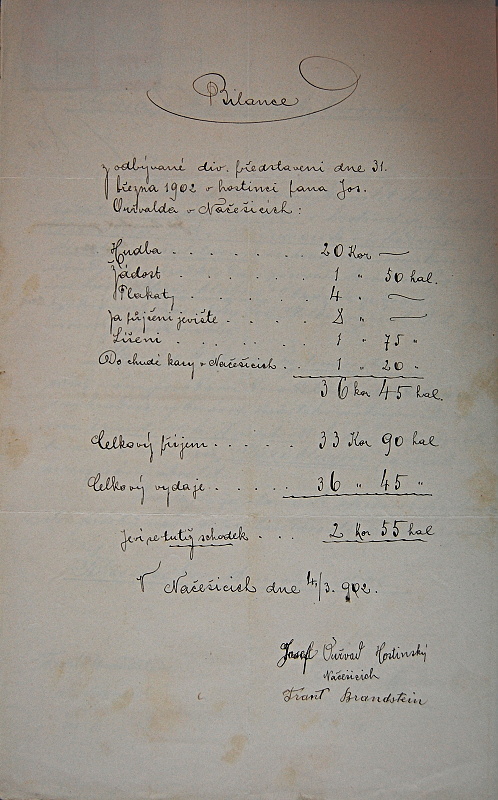 Bilance
z odbývané div. představení dne 31.
března 1902 v hostinci pana Jos.
v Načešicích:
Hudba . . . . . . 20 Kor —
Žádost . . . . . . 1 „ 50 hal.
Plakaty . . . . . . 4 „ —
Za půjčení jeviště . . . . 8 „ —
Líčení . . . . . . 1 „ 75 „
Do chudé kasy v Načešicích . . 1 „ 20 „
36 kor 45 hal.
Celkový příjem . . . . . 33 Kor 90 hal
Celkový vydaje . . . . . 36 „ 45 „
Jeví se tutiž schodek . . . 2 Kor 55 hal
V Načešicích dne 4/3. 902.
Josef Hostinský
Načešicích
Frant Brandstein